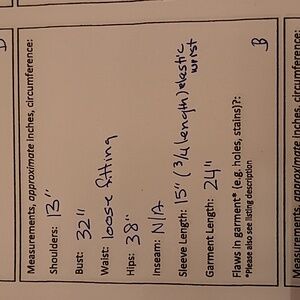 Measurements, approximate inches, circumference:
Shoulders: 13"
Bust: 32"
Waist: loose fitting
Hips: 38"
Inseam: N/A
Sleeve Length: 15" (3/4 length) elastic wrist
Garment Length: 24"
Flaws in garment* (e.g. holes, stains)?:
*Please also see listing description
B